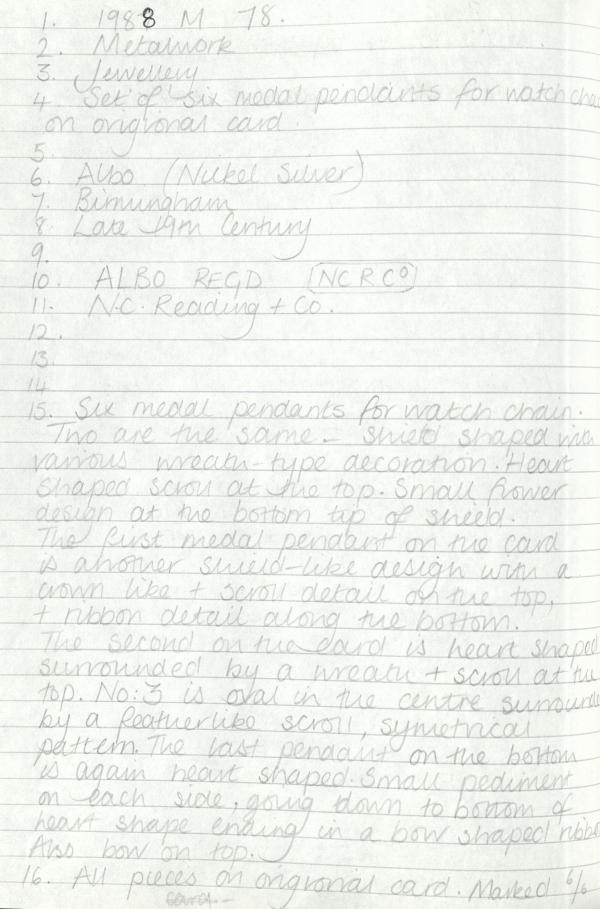 1. 1988 M 78.
2. Metalwork
3. Jewellery
4 Set of six medal pendants for watch cha
on origional card.
5
6. Albo (Nickel Silver)
7. Birmingham
8. Late 19th Century
9.
10. ALBO REGD NCRCo
11. N.C. Reading + Co.
12.
13.
14
15. Six medal pendants for watch chain.
Two are the same - shield shaped with
various wreath-type decoration. Heart
shaped scroll at the top. Small flower
design at the bottom tip of shield.
The first medal pendant on the card
is another shield-like design with a
crown like + scroll detail on the top,
+ ribbon detail along the bottom.
The second on the card is heart shaped
surrounded by a wreath + scroll at the
top. No: 3 is oval in the centre surrounde
by a featherlike scroll, symetrical
pattern. The last pendant on the bottom
is again heart shaped. Small pediment
on each side, going down to bottom of
heart shape ending in a bow shaped ribbo
Also bow on top.
16. All pieces on origional card. Marked 6/6